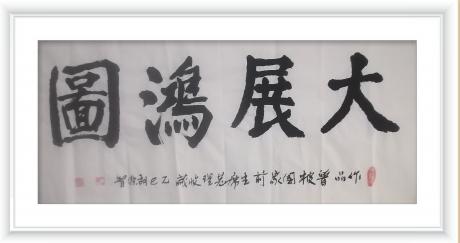 大展鴻圖
作品曾被国家前主席总理收藏乙巳